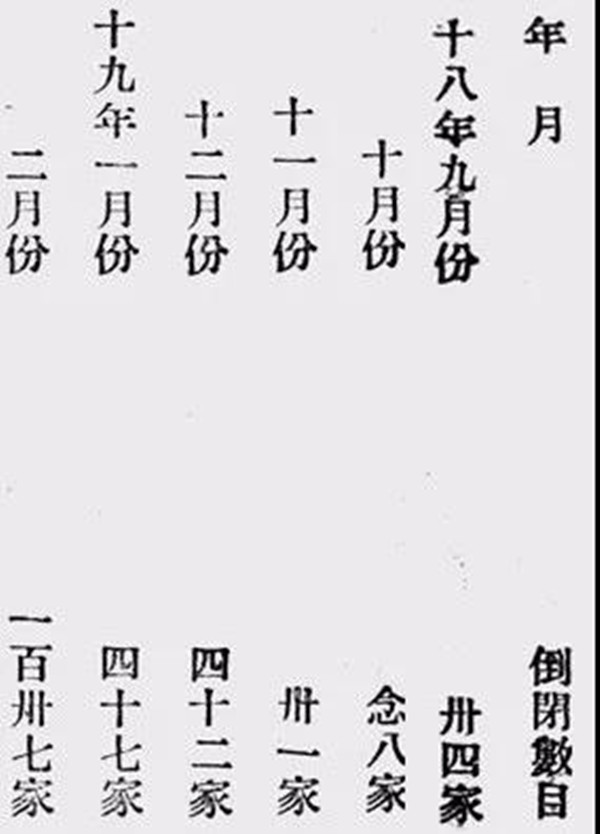 年月 倒閉數目
十八年九月份 卅四家
十月份 念八家
十一月份 卅一家
十二月份 四十二家
十九年一月份 四十七家
二月份 一百卅七家